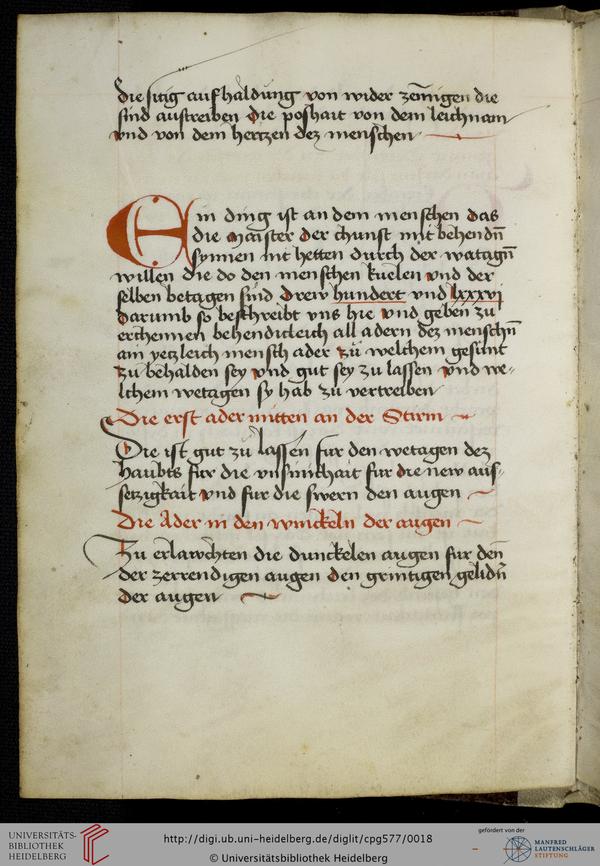 die sitig aufhaldung von wider zemigen die
sind austreiben die poshait von dem leichnam
vnd von dem hertzen dez menschen
Ein ding ist an dem menschen das
die maister der chunst mit behendn̄
synnen int hetten durch der watagn̄
willen die do den menschen kuelen vnd der
selben betagen sind drew hundert vnd lxxxvj
darumb so beschreibt vns hie vnd geben zu
erchennen behendicleich all adern dez menschn̄
am yetzleich mensch ader zu welchem gesunt
zu behalden sey vnd gut sey zu lassen vnd we-
lchem wetagen sy hab zu vertreiben
Die erst ader mitten an der Stirm
Die ist gut zu lassen fur den wetagen dez
haubts fur die vnsinnichait fur die new aus-
setzigkait vnd fur die swern den augen
Die Ader in den winckeln der augen
Zu erlawchten die dunckelen augen fur den
der zerrendigen augen den grintigen gelidn̄
der augen
UNIVERSITÄTS-
BIBLIOTHEK
HEIDELBERG
http://digi.ub.uni-heidelberg.de/diglit/cpg577/0018
© Universitätsbibliothek Heidelberg
gefördert von der
MANFRED
LAUTENSCHLÄGER
STIFTUNG